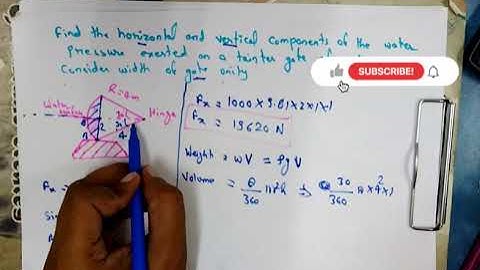 Find the horizontal and vertical components of the water
pressure exerted on a tainter gate
Consider width of gate unity
SUBSCRIBE!
R=4m
Water
Hinge
30°
30°
2
4
Fx = 1000 × 9.81 × 2 × 1 × 1
Fx = 19620 N
Weight = wV = ρgV
Volume = θ/360 πr²h ⇒ 30/360 π × 4² × 1
Fx =